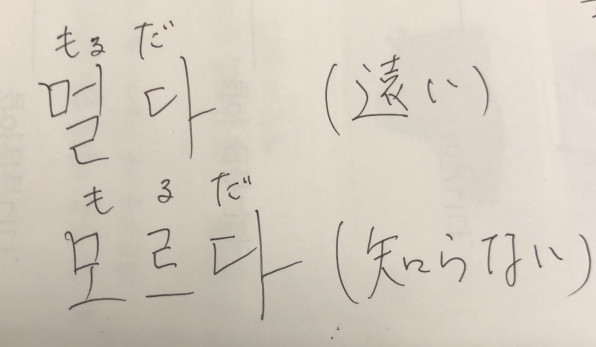 もるだ
멀다 (遠い)
もるだ
모르다 (知らない)